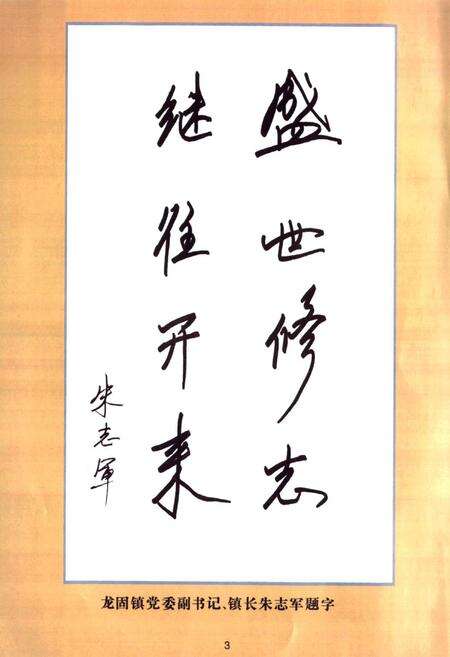 盛世修志
继往开来
朱志军
龙固镇党委副书记、镇长朱志军题字
3